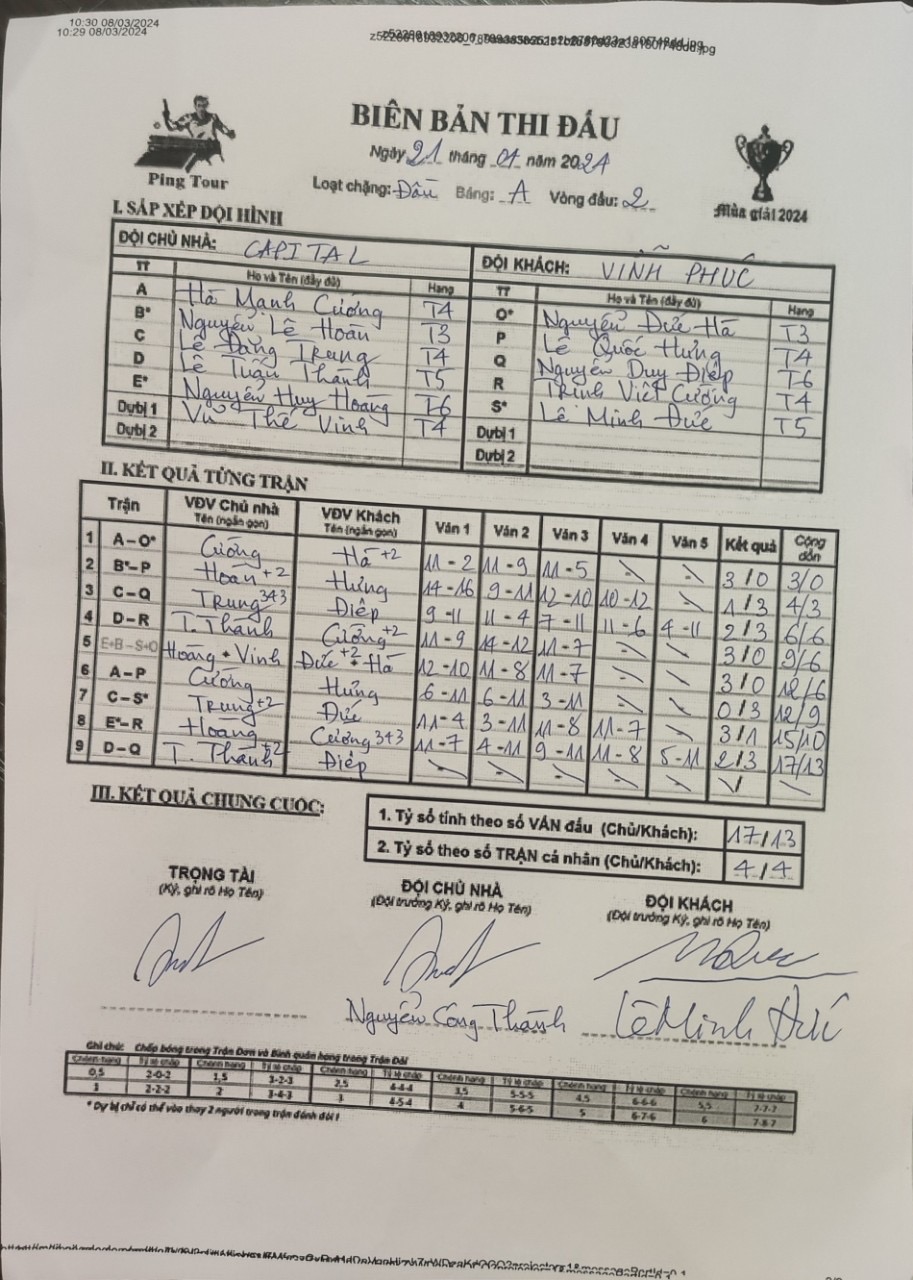 10:30 08/03/2024
10:29 08/03/2024
Ping Tour
BIÊN BẢN THI ĐẤU
Ngày 21 tháng 01 năm 2024
Loạt chặng: Đầu Bảng: A Vòng đấu: 2
Mùa giải 2024
I. SẮP XẾP ĐỘI HÌNH
ĐỘI CHỦ NHÀ: CAPITAL ĐỘI KHÁCH: VĨNH PHÚC
TT Họ và Tên (đầy đủ) Hạng TT Họ và Tên (đầy đủ) Hạng
A Hà Mạnh Cường T4 O* Nguyễn Đức Hà T3
B* Nguyễn Lê Hoàn T3 P Lê Quốc Hưng T4
C Lê Đăng Trung T4 Q Nguyễn Duy Điệp T6
D Lê Tuấn Thành T5 R Trịnh Việt Cường T4
E* Nguyễn Huy Hoàng T6 S* Lê Minh Đức T5
Dự bị 1 Vũ Thế Vinh T4 Dự bị 1
Dự bị 2 Dự bị 2
II. KẾT QUẢ TỪNG TRẬN
Trận VĐV Chủ nhà Tên (ngắn gọn) VĐV Khách Tên (ngắn gọn) Ván 1 Ván 2 Ván 3 Ván 4 Ván 5 Kết quả Cộng dồn
1 A – O* Cường Hà +2 11 - 2 11 - 9 11 - 5 3/0 3/0
2 B* – P Hoàn +2 Hưng 14 - 16 9 - 11 12 - 10 10 - 12 1/3 4/3
3 C – Q Trung 343 Điệp 9 - 11 11 - 4 7 - 11 11 - 6 4 - 11 2/3 6/6
4 D – R T. Thành Cường +2 11 - 9 14 - 12 11 - 7 3/0 9/6
5 E+B – S+O Hoàng + Vinh Đức +2 + Hà 12 - 10 11 - 8 11 - 7 3/0 12/6
6 A – P Cường Hưng 6 - 11 6 - 11 3 - 11 0/3 12/9
7 C – S* Trung +2 Đức 11 - 4 3 - 11 11 - 8 11 - 7 3/1 15/10
8 E* – R Hoàng Cường 343 11 - 7 4 - 11 9 - 11 11 - 8 5 - 11 2/3 17/13
9 D – Q T. Thành +2 Điệp
III. KẾT QUẢ CHUNG CUỘC:
1. Tỷ số tính theo số VÁN đấu (Chủ/Khách): 17/13
2. Tỷ số theo số TRẬN cá nhân (Chủ/Khách): 4/4
TRỌNG TÀI ĐỘI CHỦ NHÀ ĐỘI KHÁCH
(Ký, ghi rõ Họ Tên) (Đội trưởng Ký, ghi rõ Họ Tên) (Đội trưởng Ký, ghi rõ Họ Tên)
Nguyễn Công Thành Lê Minh Đức
Ghi chú: Chấp bóng trong Trận Đơn và Bình quân hạng trong Trận Đôi
Chênh hạng Tỷ lệ chấp Chênh hạng Tỷ lệ chấp Chênh hạng Tỷ lệ chấp Chênh hạng Tỷ lệ chấp Chênh hạng Tỷ lệ chấp Chênh hạng Tỷ lệ chấp
0,5 2-0-2 1,5 3-2-3 2,5 4-4-4 3,5 5-5-5 4,5 6-6-6 5,5 7-7-7
1 2-2-2 2 3-4-3 3 4-5-4 4 5-6-5 5 6-7-6 6 7-8-7
* Dự bị chỉ có thể vào thay 2 người trong trận đánh đôi !